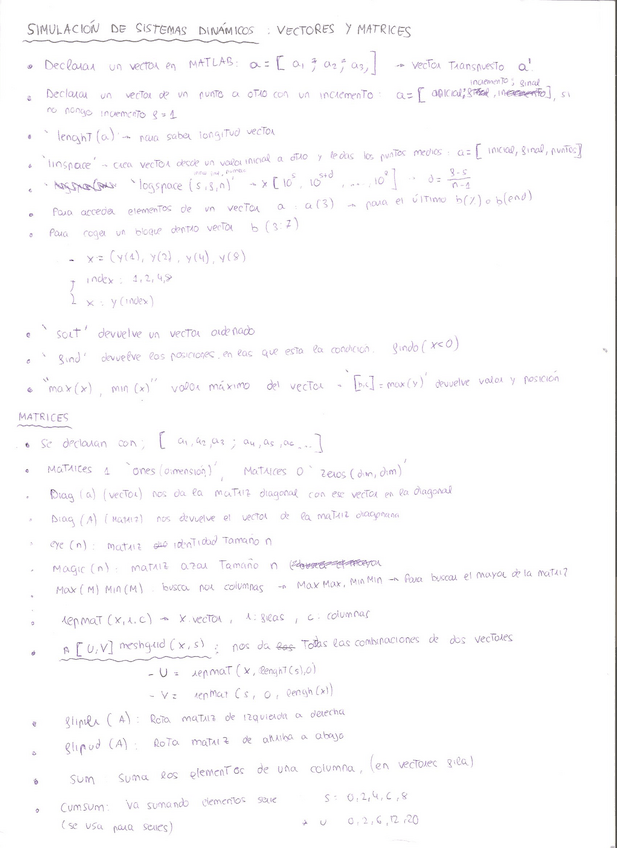 SIMULACIÓN DE SISTEMAS DINÁMICOS : VECTORES Y MATRICES
• Declarar un vector en MATLAB: a = [ a₁ ; a₂ ; a₃, ] → vector transpuesto a'
incremento ; final
• Declarar un vector de un punto a otro con un incremento: a = [ inicial; ], si
no pongo incremento = 1
• 'lenght (a) → para saber longitud vector
• 'linspace' → crea vector desde un valor inicial a otro y todos los puntos medios: a = [ inicial, final, puntos]
• 'logspace (s, f, n)' → x [ 10ˢ, 10ˢ⁺ᵈ, ...., 10 ]
• Para acceder elementos de un vector a : a (3) → para el último b(7) o b(end)
• Para coger un bloque dentro vector b (3:7)
- x = (y(1), y(2), y(4), y(8)
index : 1,2,4,8
x : y (index)
• 'sort' devuelve un vector ordenado
• 'find' devuelve las posiciones en las que esta la condición. (x<0)
• "max (x), min (x)" valor máximo del vector - = max(x)' devuelve valor y posición
MATRICES
• Se declaran con; [ a₁, a₂, a₃ ; a₄, a₅, a₆ ... ]
• Matrices 1 'ones (dimensión)', Matrices 0 'zeros (dim, dim)'
• Diag (a) (vector) nos da la matriz diagonal con ese vector en la diagonal
• Diag (A) (Matriz) nos devuelve el vector de la matriz
• eye (n) : matriz identidad tamaño n
• Magic (n) : matriz azar tamaño n
• Max (M) Min (M) : busca por columnas → Max Max, Min Min → Para buscar el mayor de la matriz
• repmat (x, r, c) → x vector, r: filas, c: columnas
• [U,V] meshgrid (x,s) : nos da todas las combinaciones de dos vectores
- U = repmat (x, lenght (s), 0)
- V = repmat (s, 0, lengh (x))
• fliplr (A) : Rota matriz de izquierda a derecha
• flipud (A) : Rota matriz de arriba a abajo
• sum : suma los elementos de una columna, (en vectores fila)
• Cumsum: va sumando elementos s : 0,2,4,6,8
(se usa para series) 0,2,6,12,20